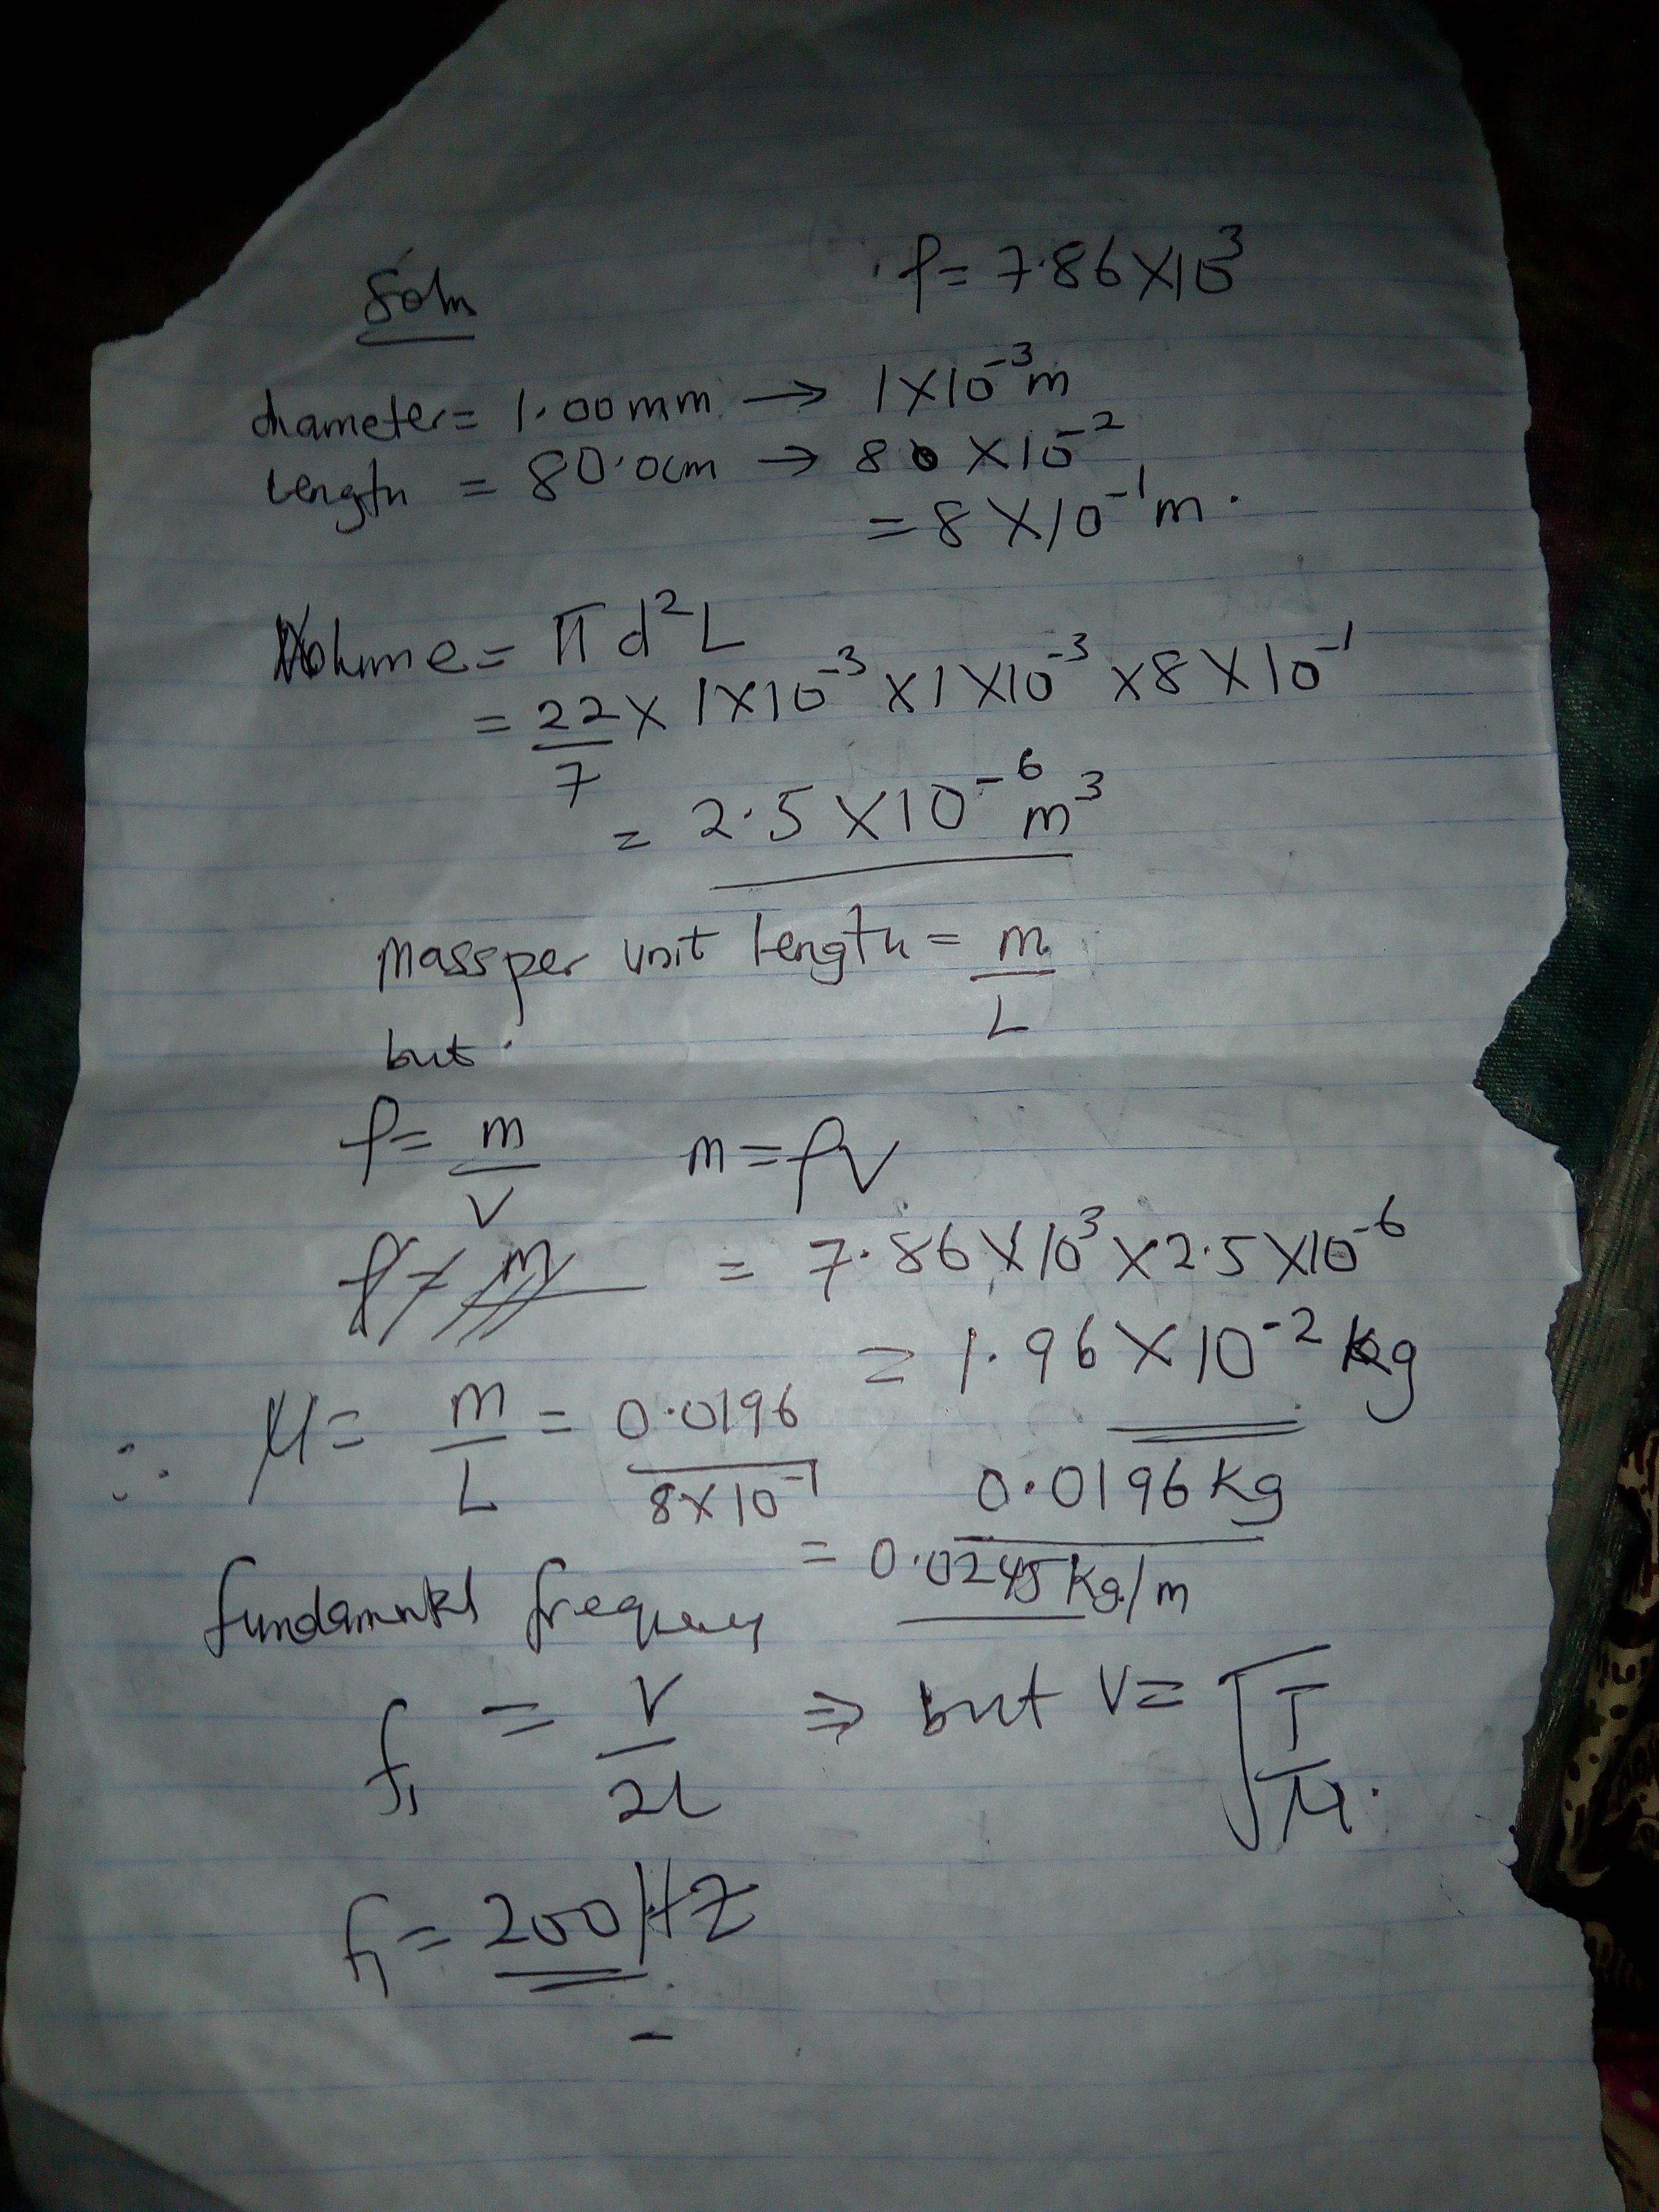 Soln
ρ = 7.86 X 10³
diameter = 1.00mm → 1 X 10⁻³m
Length = 80.0cm → 80 X 10⁻²
= 8 X 10⁻¹m.
Volume = πd²L
= 22/7 X 1 X 10⁻³ X 1 X 10⁻³ X 8 X 10⁻¹
= 2.5 X 10⁻⁶ m³
mass per unit length = m/L
but
ρ = m/V m = ρV
ρ = m = 7.86 X 10³ X 2.5 X 10⁻⁶
= 1.96 X 10⁻² kg
0.0196 kg
∴ μ = m/L = 0.0196/8X10⁻¹
= 0.0245 kg/m
fundamental frequency
f₁ = V/2L ⇒ but V = √T/μ.
f₁ = 200HZ